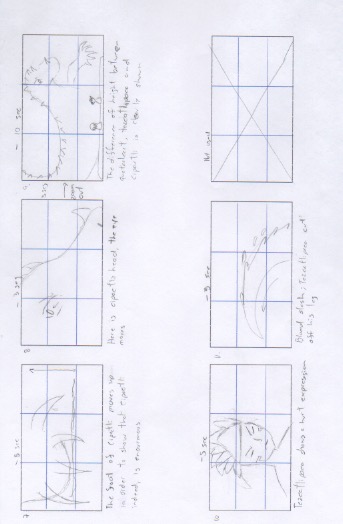 7
~ 3 sec
The foot of Cipactli moves up
in order to show that Cipactli
indeed, is enormous
8
~ 3 sec
Here is Cipactli head, the eye
moves
9
~ 10 sec
zoom
out
The difference of height between
and
Cipactli is clearly shown
10
~ 3 sec
Tezcatlipoca shows a hurt expression
11
~ 3 sec
Blood slash; Tezcatlipoca cut
off his leg
Not used